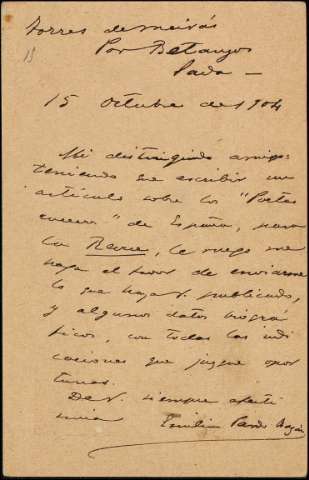 Torres de Meirás
Por Betanzos
Sada —
15 Octubre de 1904
Mi distinguido amigo:
teniendo que escribir un
artículo sobre los "Poetas
" de España, para
la Revue, le ruego me
haga el favor de enviarme
lo que haya V. publicado,
y algunos datos biográ
ficos, con todas las indi
caciones que juzgue opor
tunas.
De V. siempre afectí
sima Emilia Pardo Bazán